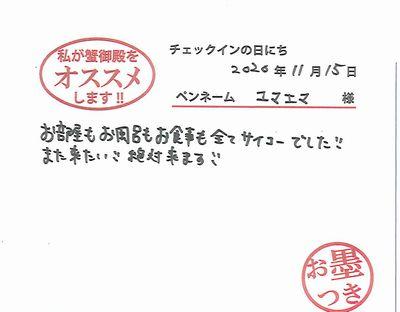 私が蟹御殿を
オススメ
します!!
チェックインの日にち
2020年11月15日
ペンネーム ユマエマ 様
お部屋もお風呂もお食事も全てサイコーでした!!
また来たい!! 絶対来まする!!
お墨
つき